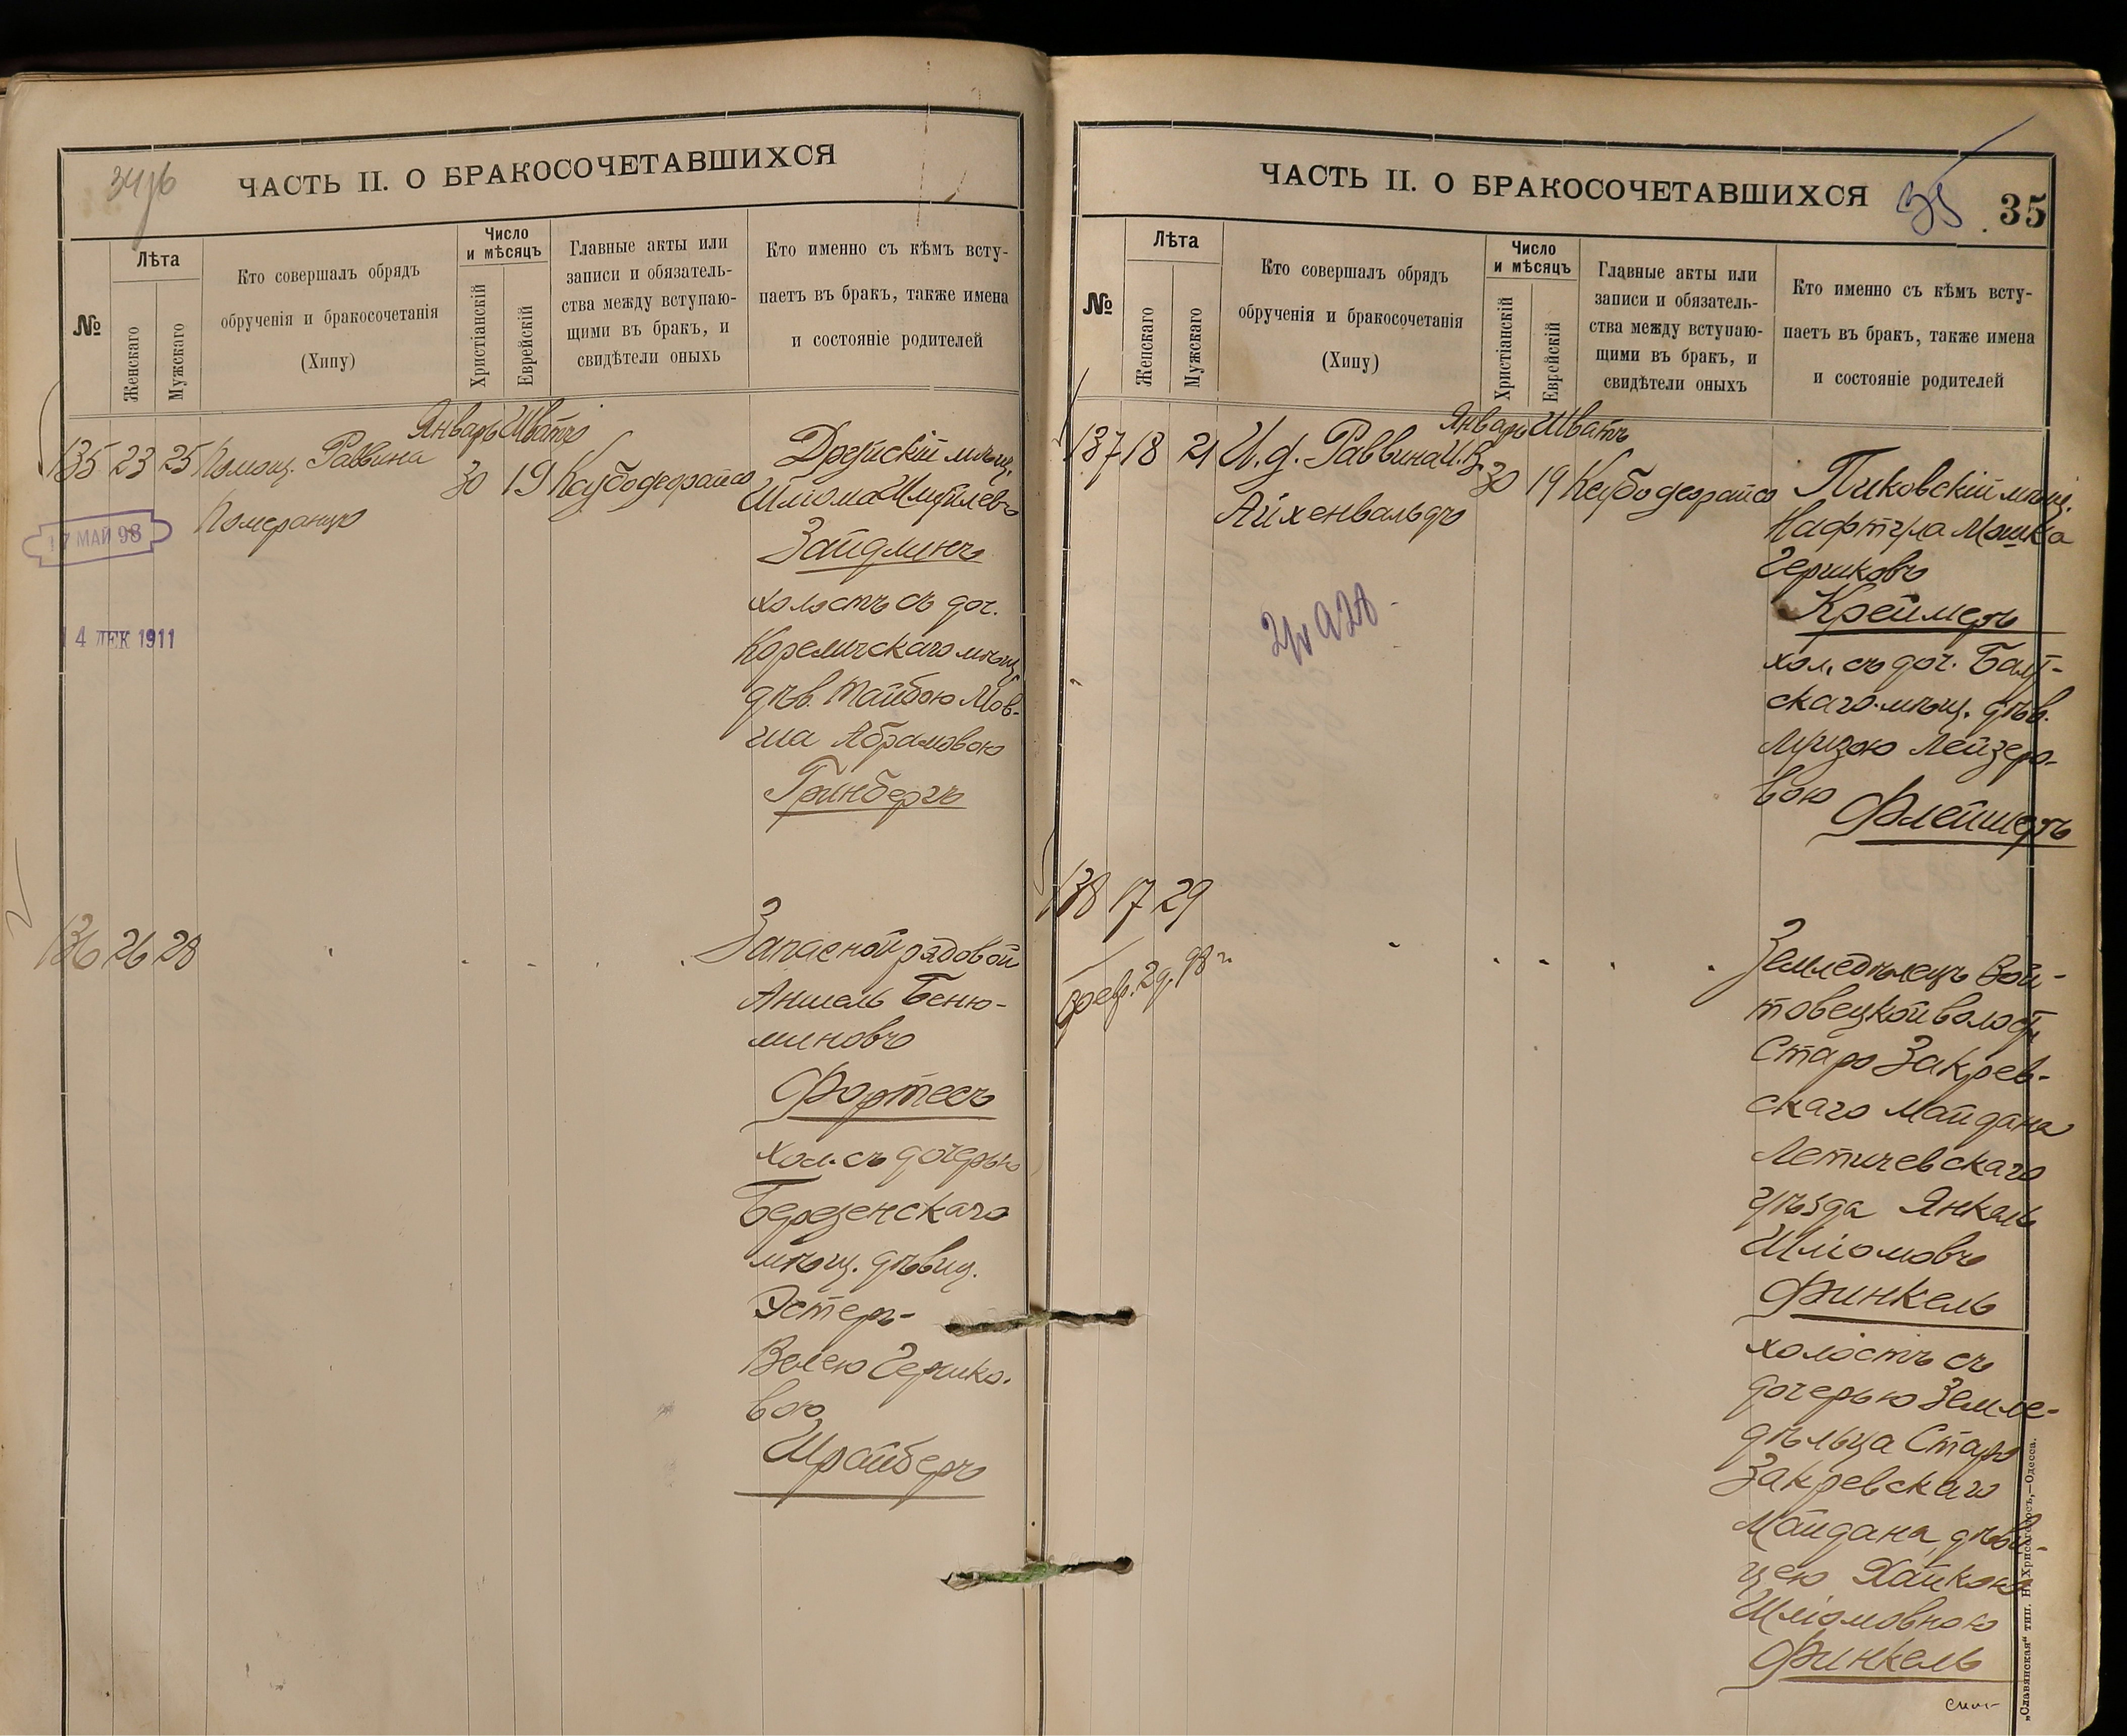 34 об
ЧАСТЬ II. О БРАКОСОЧЕТАВШИХСЯ
№
Лѣта
Женскаго
Мужскаго
Кто совершалъ обрядъ
обрученія и бракосочетанія
(Хипу)
Число
и мѣсяцъ
Христіанскій
Еврейскій
Главные акты или
записи и обязатель-
ства между вступаю-
щими въ бракъ, и
свидѣтели оныхъ
Кто именно съ кѣмъ всту-
паетъ въ бракъ, также имена
и состояніе родителей
Январь Шватъ
135 23 25 Помощ. Раввина
Померанцъ
30 19 Ксубодерайсо
17 МАЙ 98
14 ДЕК 1911
мѣщ.
Шлома Шмулевъ
Зайдлинъ
холостъ съ доч.
Кореличскаго мѣщ.
дѣв. Тайбою Мов-
ша Абрамовою
Гринбергъ
136 26 28
Запасной рядовой
Аншель Беню-
миновъ
Фортесъ
хол. съ дочерью
Березенскаго
мѣщ. дѣвиц.
Эстер-
Белею Гершко-
вою
Шрайберъ
ЧАСТЬ II. О БРАКОСОЧЕТАВШИХСЯ
35
35
№
Лѣта
Женскаго
Мужскаго
Кто совершалъ обрядъ
обрученія и бракосочетанія
(Хипу)
Число
и мѣсяцъ
Христіанскій
Еврейскій
Главные акты или
записи и обязатель-
ства между вступаю-
щими въ бракъ, и
свидѣтели оныхъ
Кто именно съ кѣмъ всту-
паетъ въ бракъ, также имена
и состояніе родителей
Январь Шватъ
137 18 21 И. д. Раввина
Айхенвальдъ
30 19 Ксубодерайсо
Пиковскій мѣщ.
Нафтула Мошка
Гершковъ
Креймеръ
хол. съ доч. Балт-
скаго мѣщ. дѣв.
Лузою Лейзеро-
вою
Флейшеръ
138 17 29
98 г.
Земледѣлецъ Вой-
товецкой волости
Старо Закрев-
скаго Майдана
Летичевскаго
уѣзда Янкель
Шліомовъ
Финкель
холостъ съ
дочерью Земле-
дѣльца Старо
Закревскаго
Майдана, дѣви-
цею Хайкою
Шліомовною
Финкель
„Славянская" тип. Н. Хрисогелосъ,—Одесса.